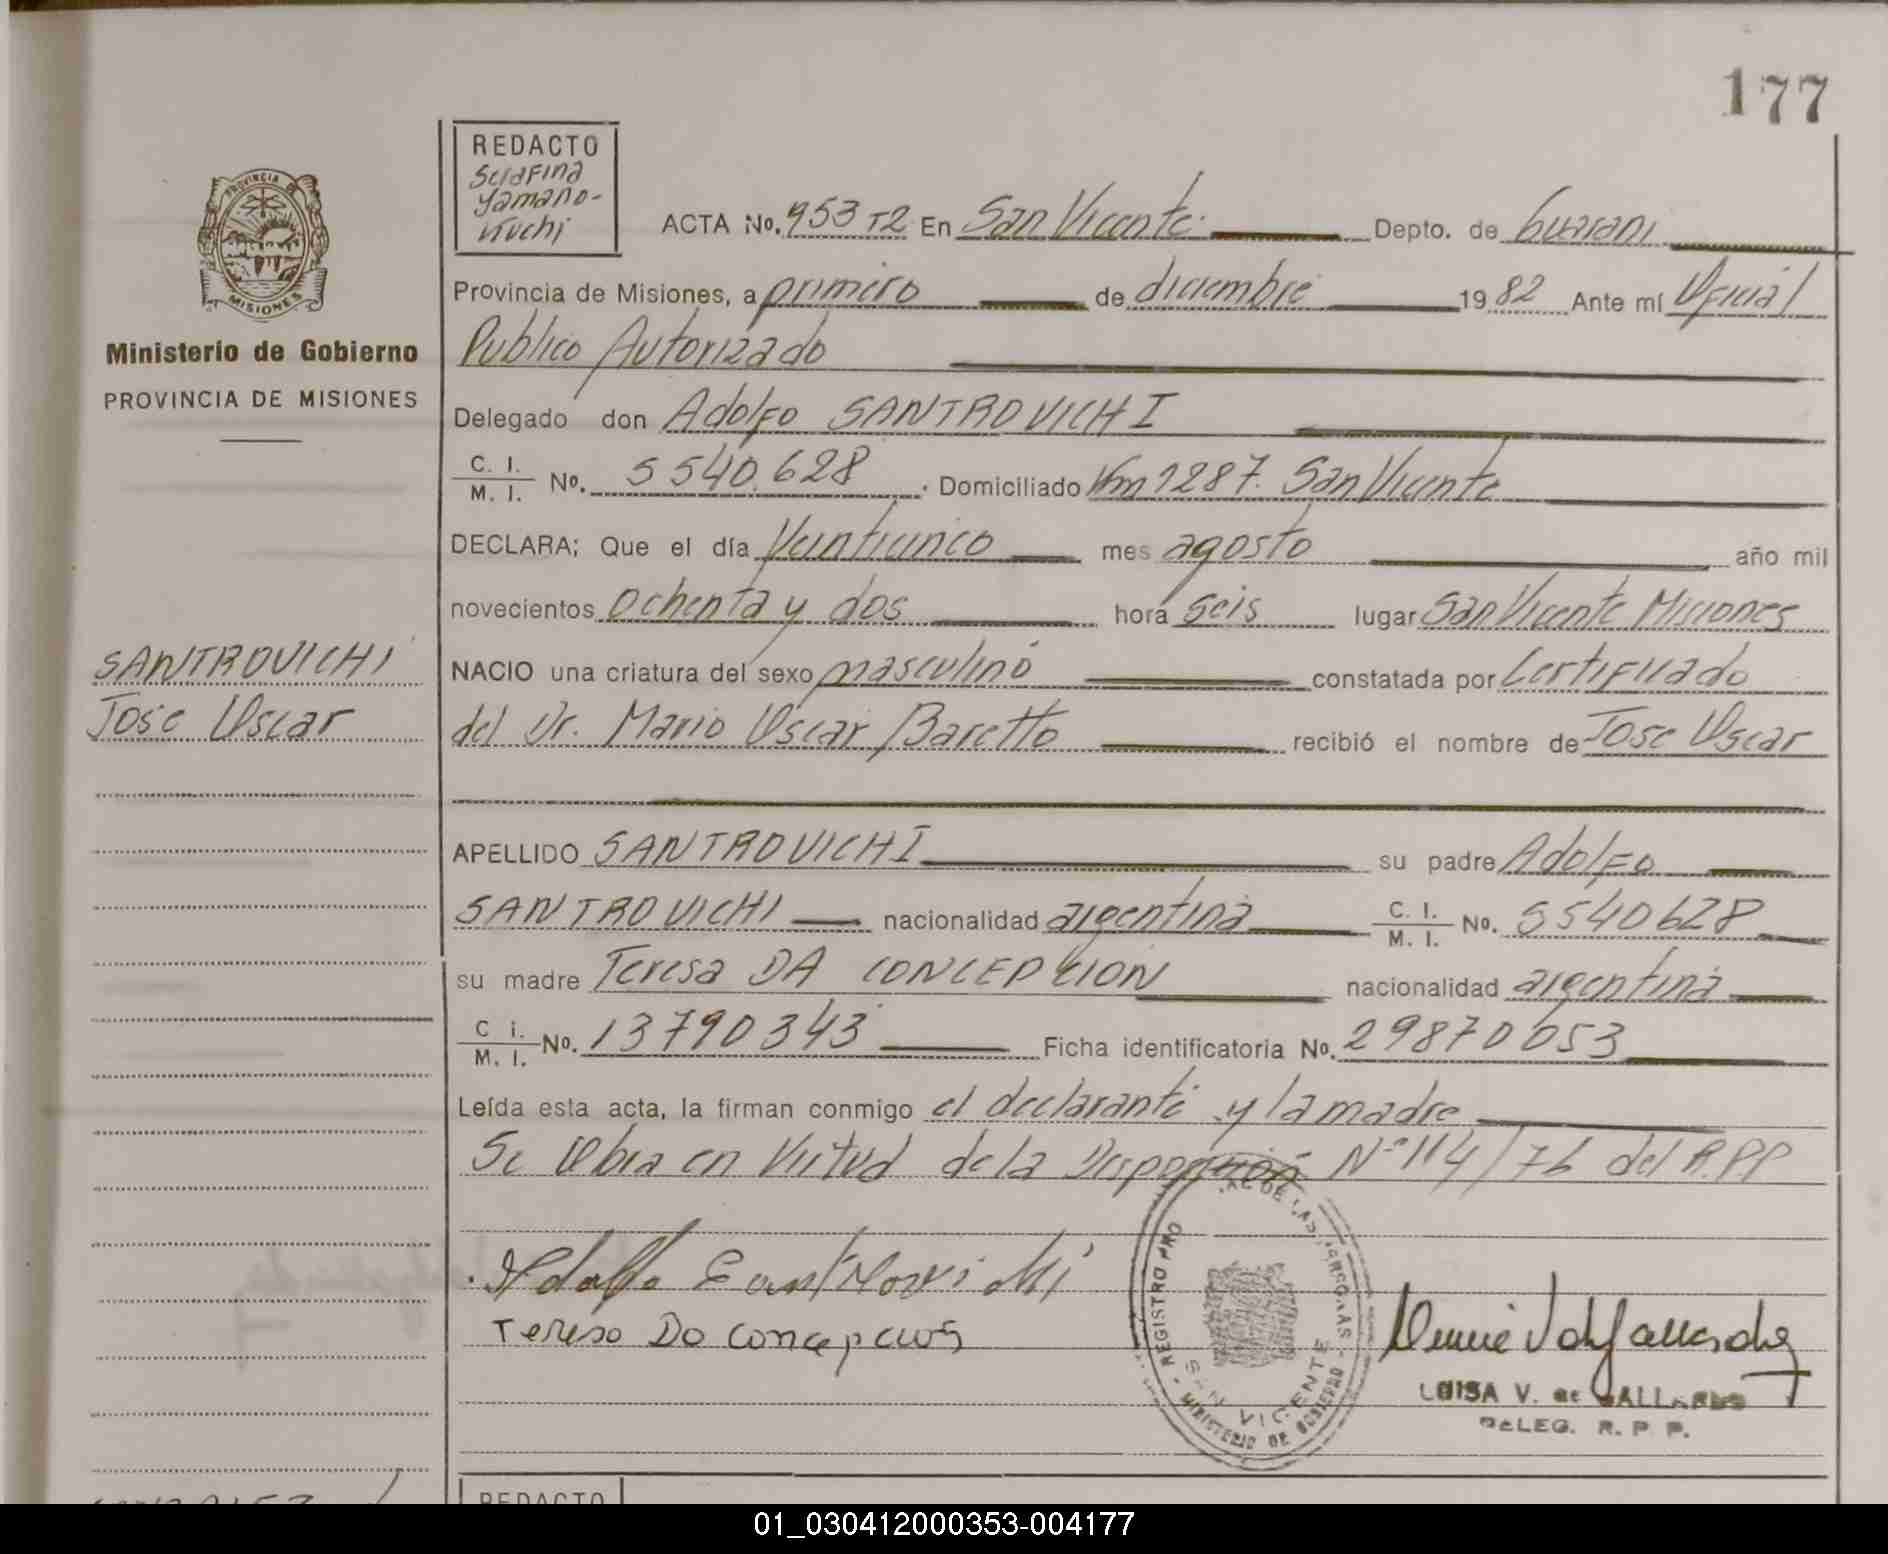 177
REDACTO
Serafina
Yamano-
kuchi
PROVINCIA DE
MISIONES
Ministerio de Gobierno
PROVINCIA DE MISIONES
ACTA No. 953 T2 En San Vicente. Depto. de Guarani
Provincia de Misiones, a primero de diciembre 1982 Ante mí Oficial
Publico Autorizado
Delegado don Adolfo SANTROVICHI
C. I. / M. I. No. 5540.628 . Domiciliado Km 1287. San Vicente
DECLARA: Que el día Veinticinco mes agosto año mil
novecientos ochenta y dos hora seis lugar San Vicente Misiones
SANTROVICHI
Jose Oscar
NACIO una criatura del sexo masculino constatada por Certificado
del Dr. Mario Oscar Baretto recibió el nombre de Jose Oscar
APELLIDO SANTROVICHI su padre Adolfo
SANTROVICHI nacionalidad argentina C. I. / M. I. No. 5540628
su madre Teresa DA CONCEPCION nacionalidad argentina
C I. / M. I. No. 13790343 Ficha identificatoria No. 29870053
Leída esta acta, la firman conmigo el declarante y la madre
Se Obra en Virtud de la Disposición Nº 114/76 del R.PP
Adolfo Santrovichi
Tereso Do concepcion
REGISTRO PRO AL DE LAS
SAN VICENTE
MINISTERIO DE GOBIERNO
LUISA V. de GALLARDO
DELEG. R. P. P.
REDACTO
01_030412000353-004177